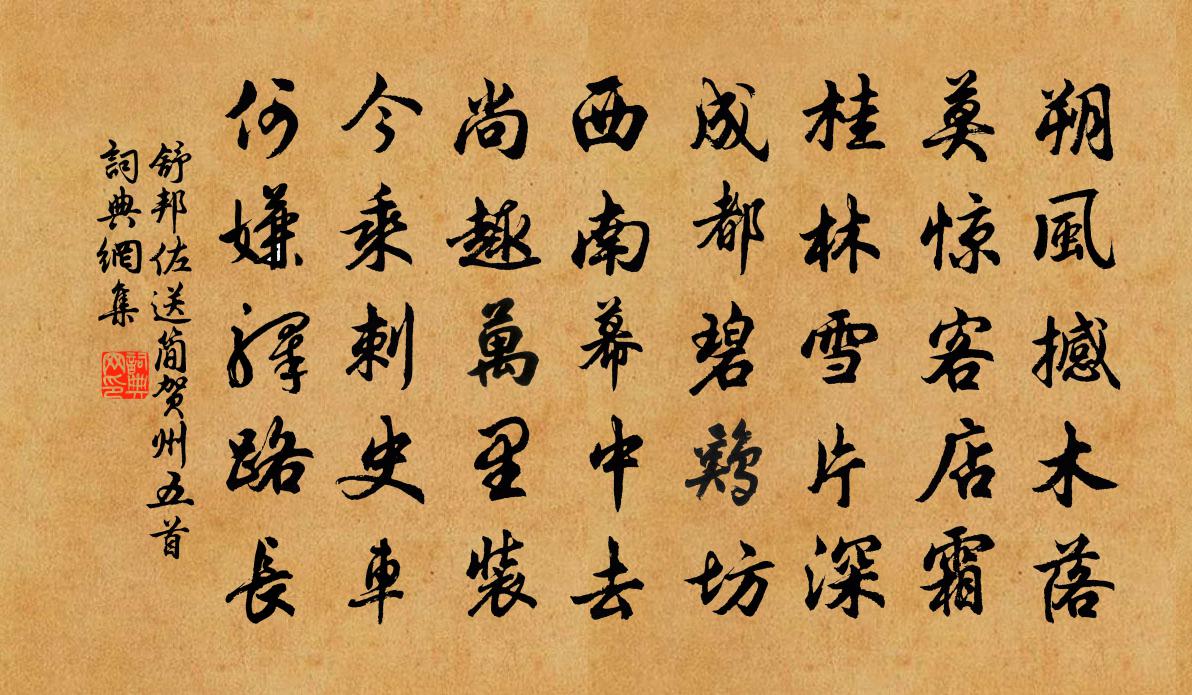 朔風撼木落
莫惊客店霜
桂林雪片深
成都碧鷄坊
西南幕中去
尚趣萬里裝
今乘刺史車
何嫌驛路長
舒邦佐送简贺州五首
詞典網集
詞典网印